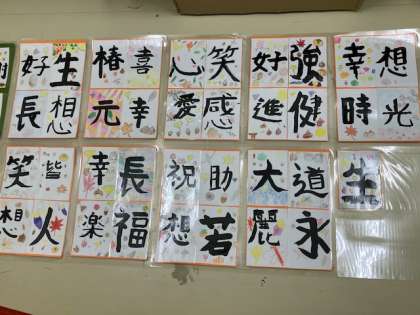 謝
好生椿喜心笑好強幸想
長想元幸愛感進健時光
笑皆幸長祝助大道生
想火楽福想若麗永